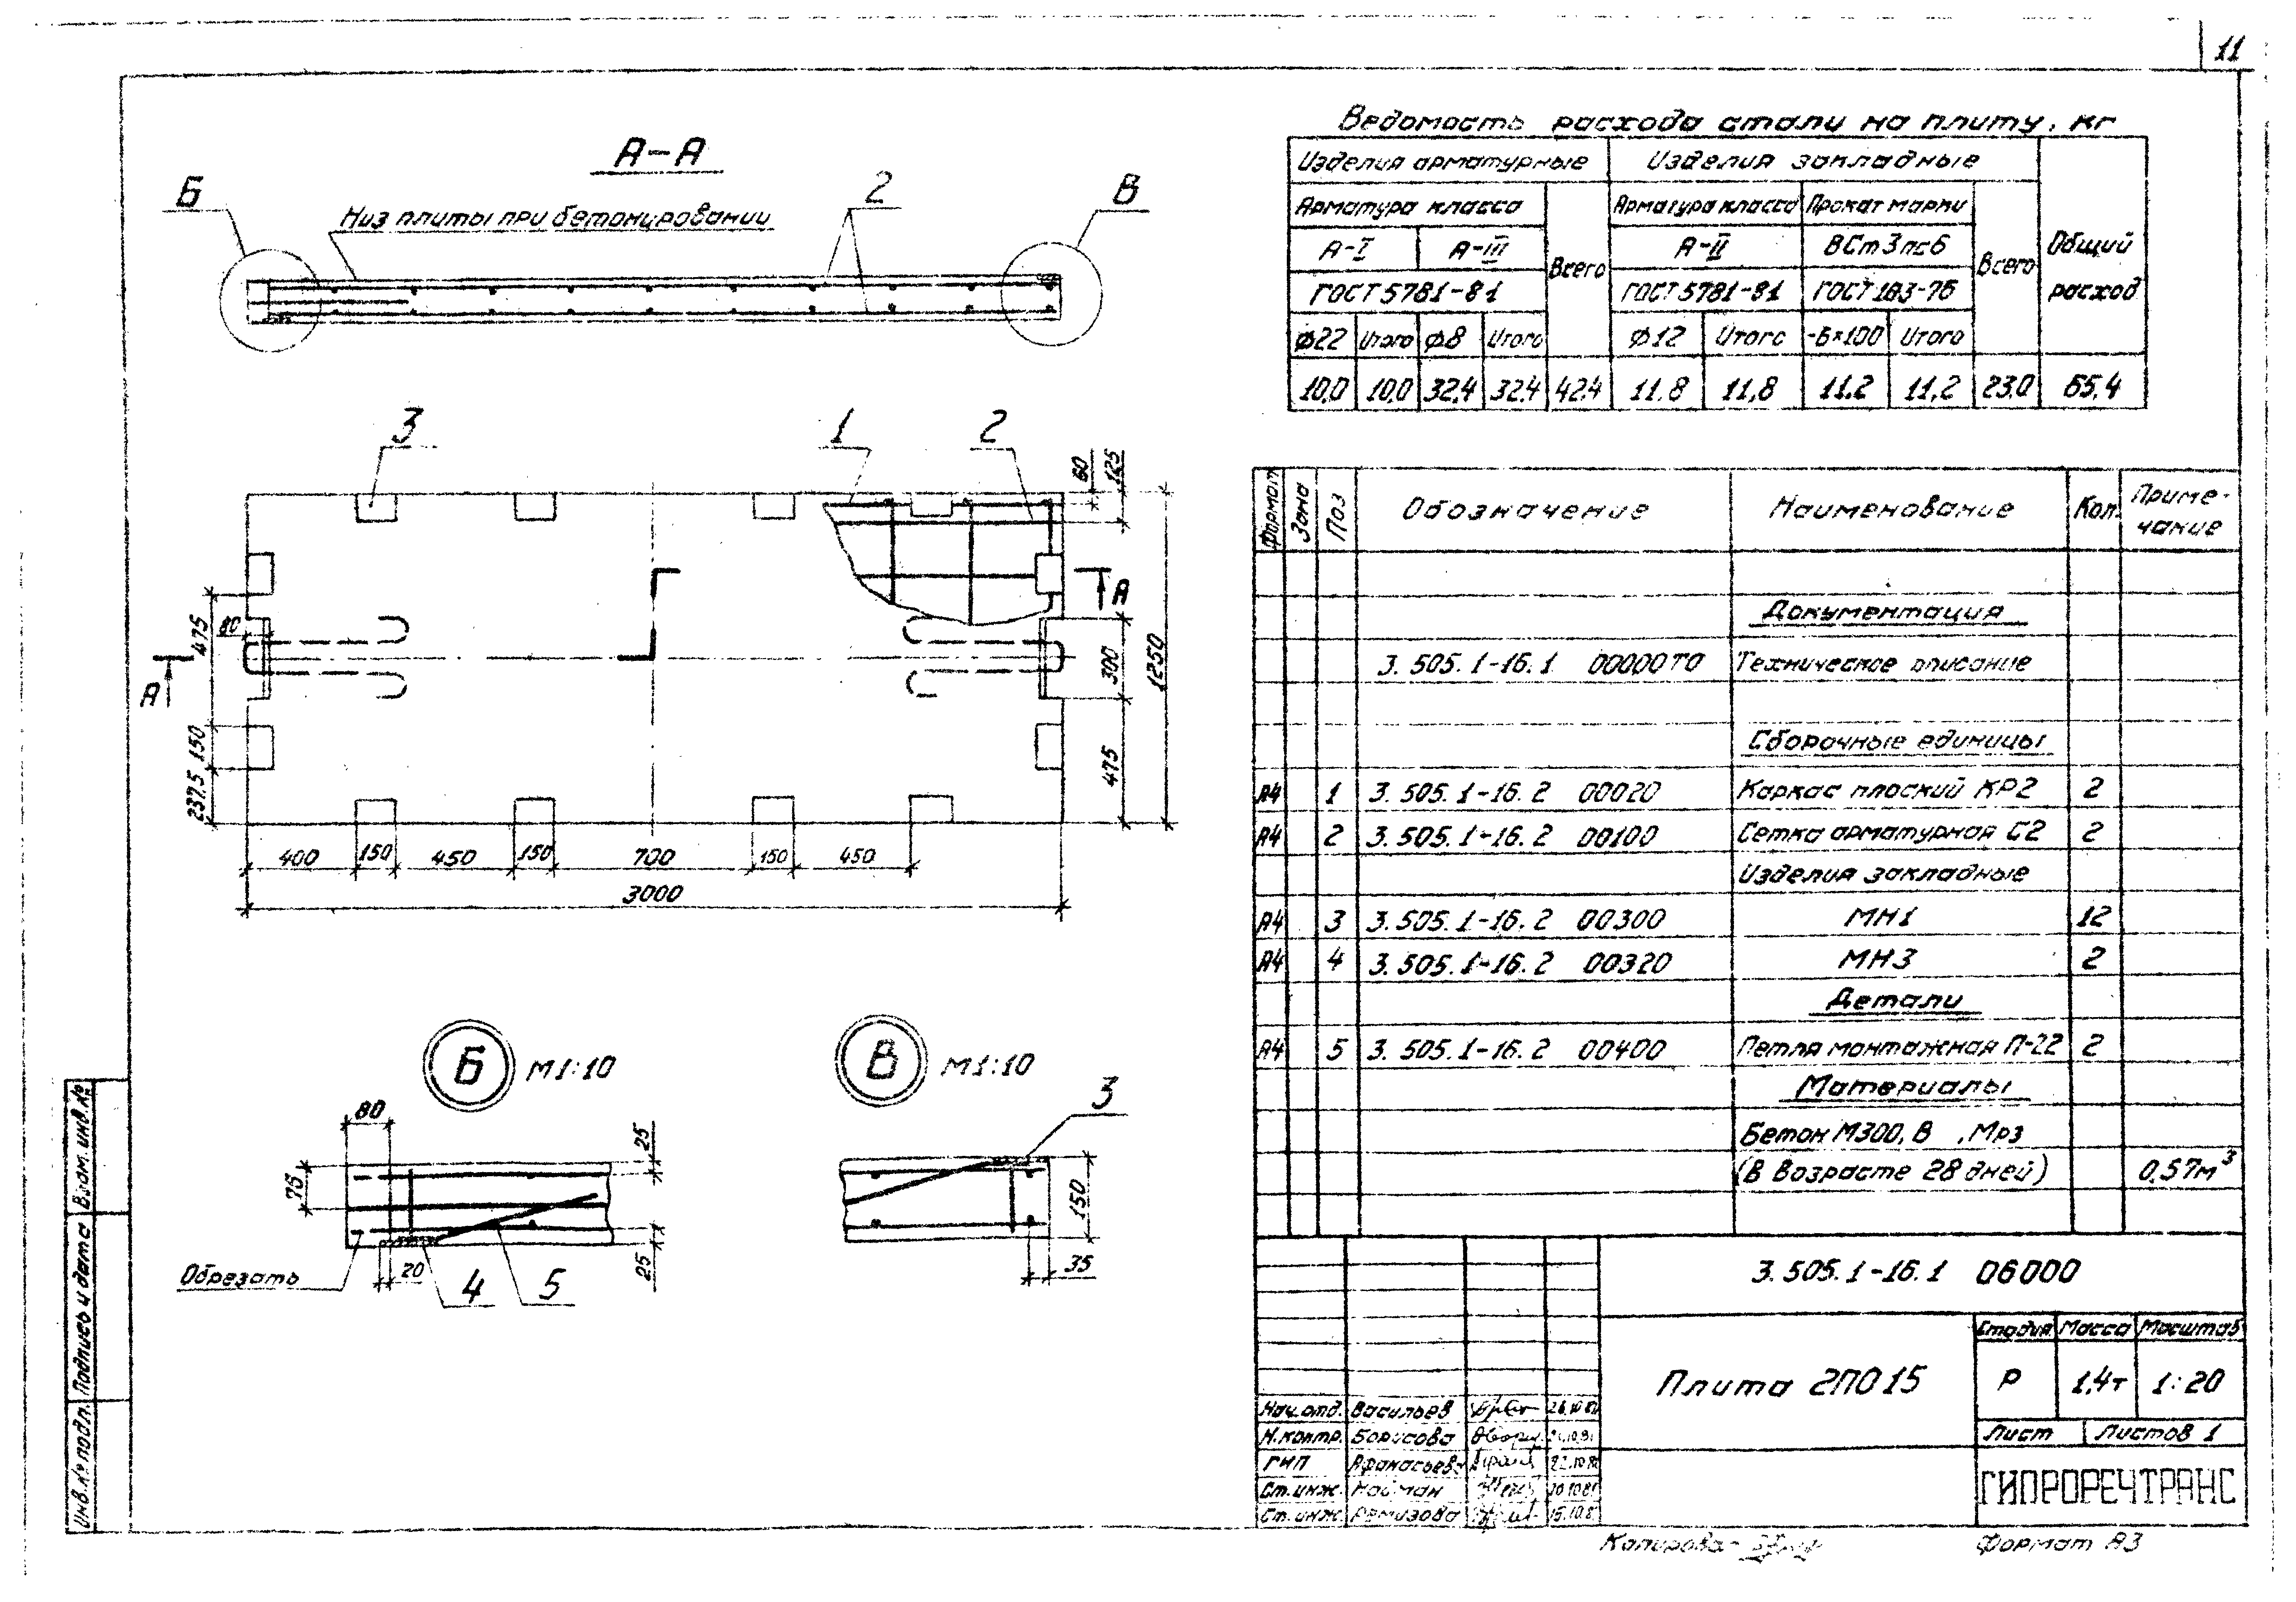 11
А-А
Б
Низ плиты при бетонировании
2
В
3
1
2
60
125
475
80
А
А
300
1250
150
475
237.5
400
150
450
150
700
150
450
3000
Б
М1:10
В
М1:10
80
25
75
25
Обрезать
20
4
5
3
150
35
Ведомость расхода стали на плиту, кг
Изделия арматурные
Изделия закладные
Общий расход
Арматура класса
Всего
Арматура класса
Прокат марки
Всего
А-I
А-III
А-II
ВСт3пс6
ГОСТ 5781-81
ГОСТ 5781-81
ГОСТ 103-76
Ф22
Итого
Ф8
Итого
Ф12
Итого
-6×100
Итого
10,0
10,0
32,4
32,4
42,4
11.8
11,8
11.2
11,2
23,0
65,4
Формат
Зона
Поз
Обозначение
Наименование
Кол.
Примечание
Документация
3.505.1-16.1 00000ТО Техническое описание
Сборочные единицы
А4 1 3.505.1-16.2 00020 Каркас плоский КР2 2
А4 2 3.505.1-16.2 00100 Сетка арматурная С2 2
Изделия закладные
А4 3 3.505.1-16.2 00300 МН1 12
А4 4 3.505.1-16.2 00320 МН3 2
Детали
А4 5 3.505.1-16.2 00400 Петля монтажная П-22 2
Материалы
Бетон М300, В , Мрз
(В возрасте 28 дней) 0,57м³
3.505.1-16.1 06000
Плита 2П015
Стадия Масса Масштаб
Р 1,4т 1:20
Лист Листов 1
ГИПРОРЕЧТРАНС
Нач.отд. Васильев
Н.контр. Борисова
ГИП Афанасьев
Ст.инж. Найман
Ст.инж. Ремизова
Инв.№ подл.
Подпись и дата
Взам. инв.№
Копировал
Формат А3